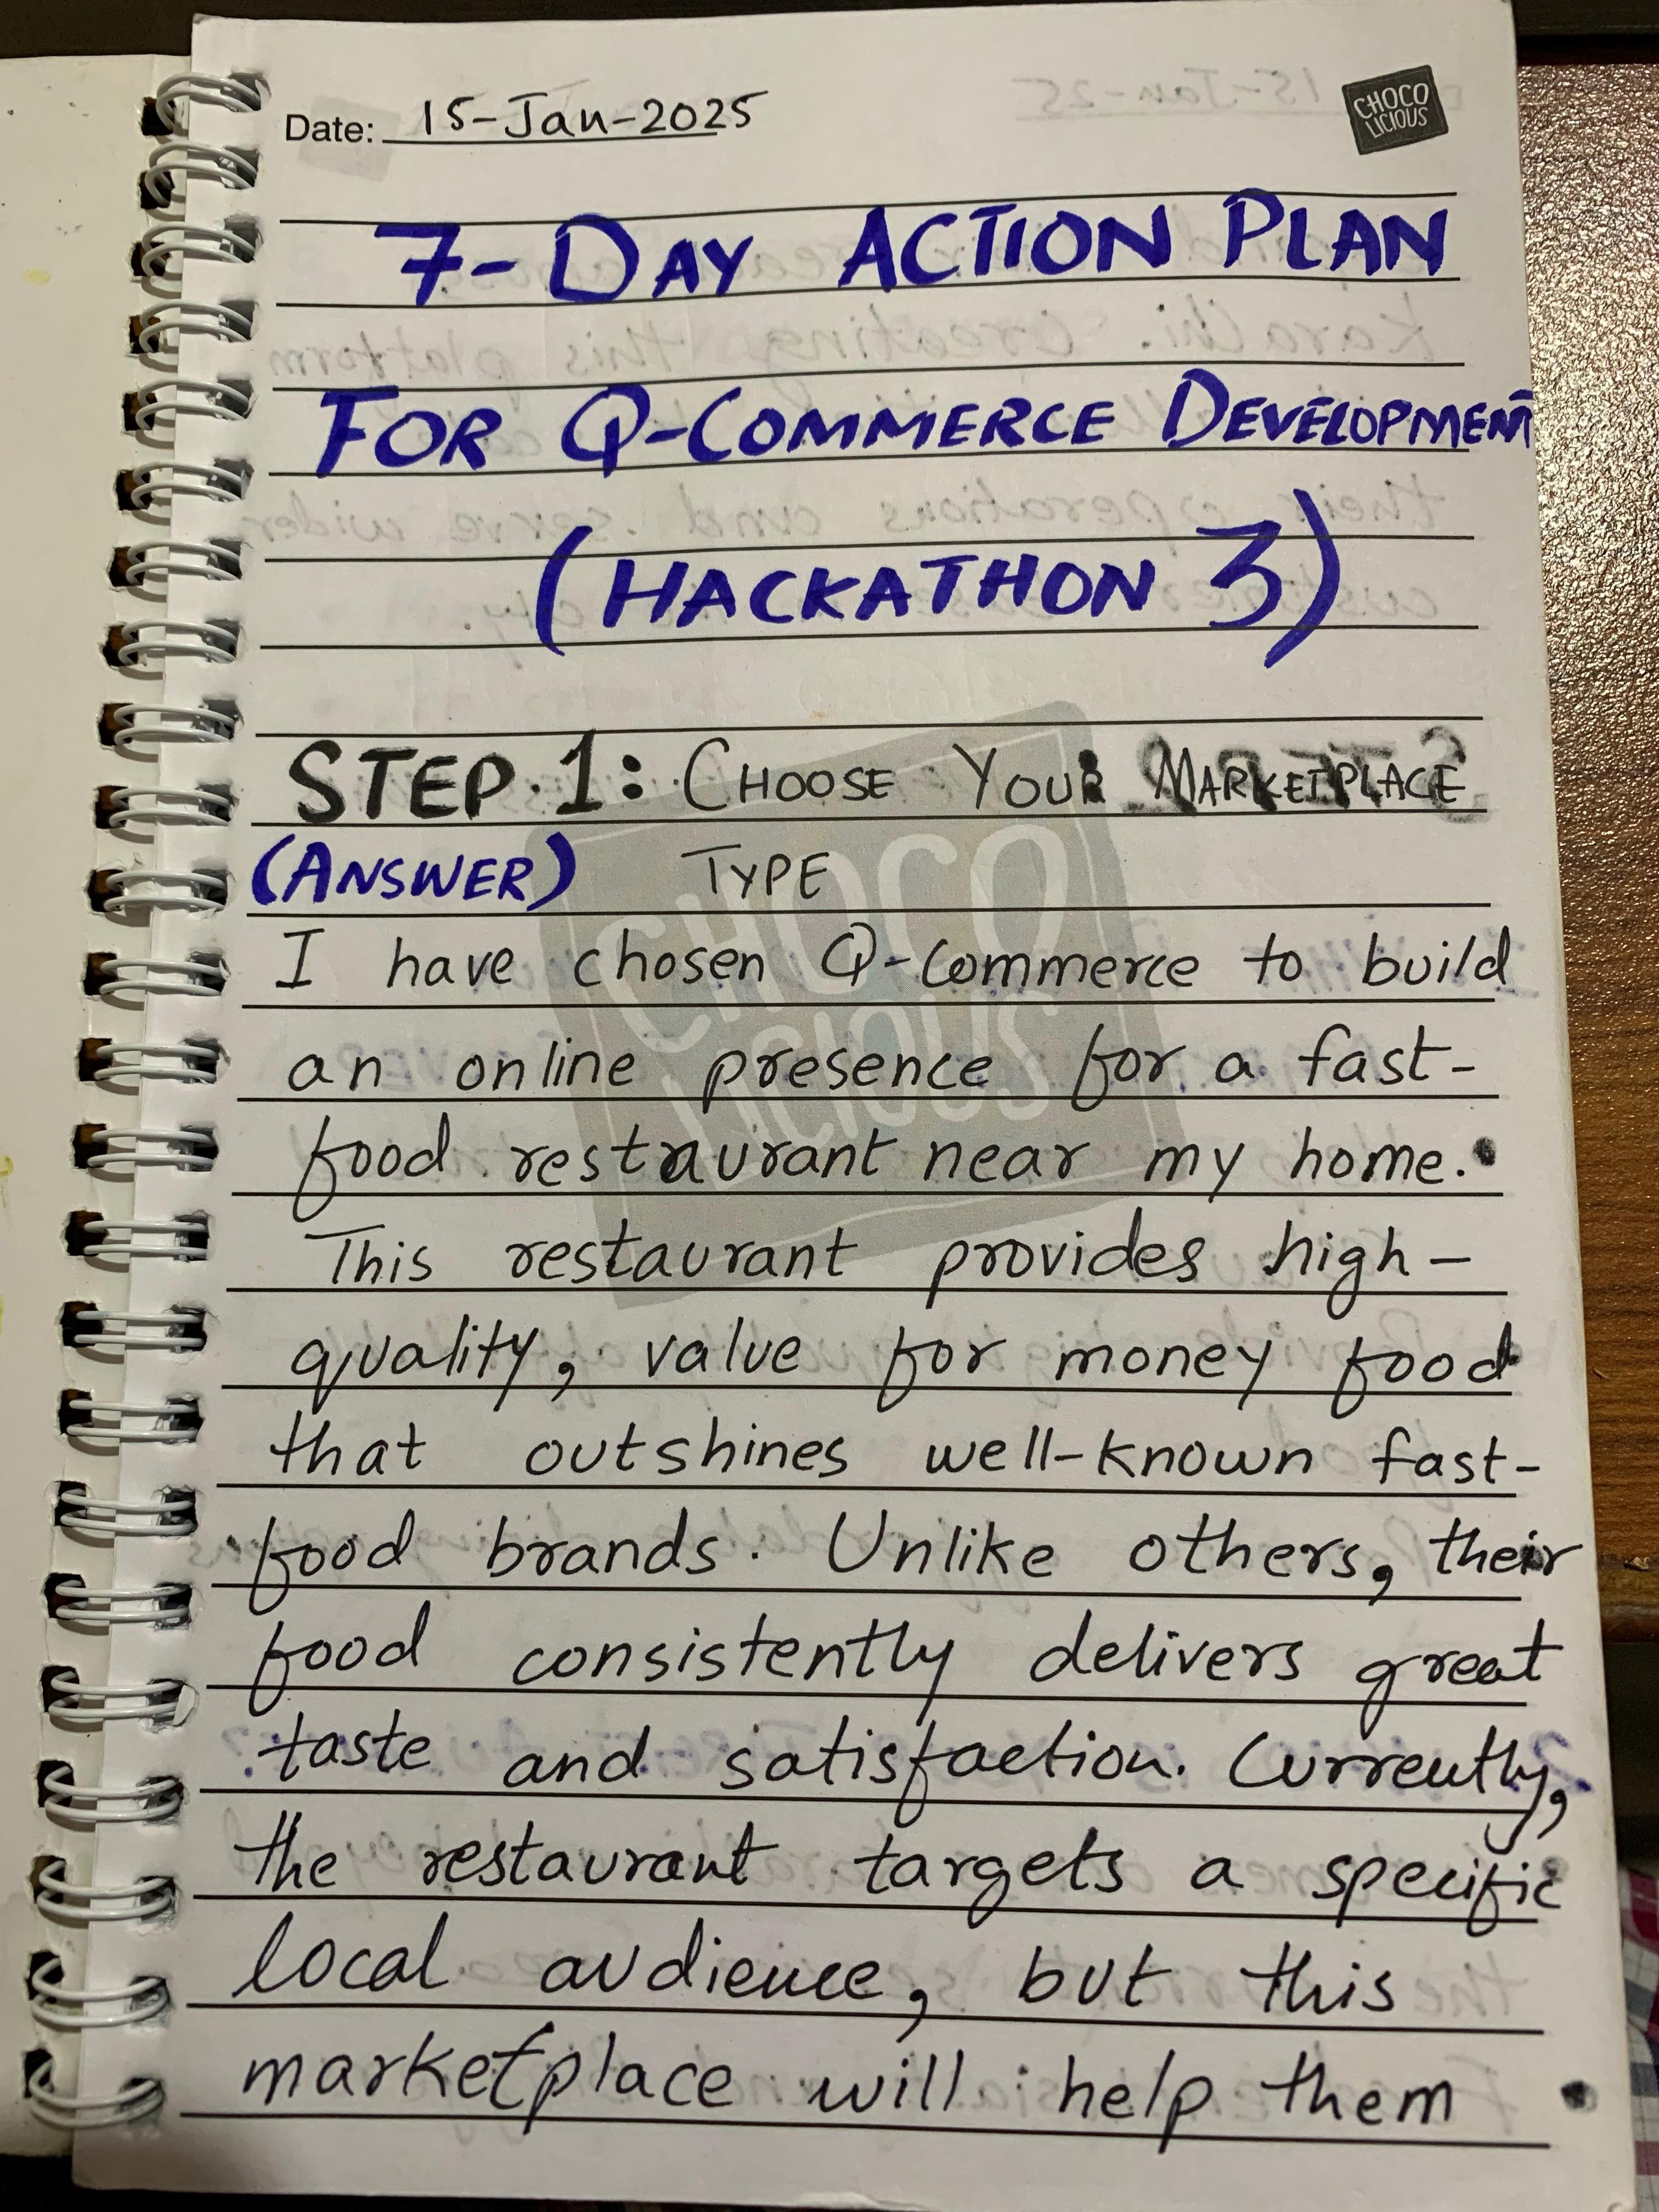 Date: 15-Jan-2025
CHOCO
LICIOUS
7-DAY ACTION PLAN
FOR Q-COMMERCE DEVELOPMENT
(HACKATHON 3)
STEP 1: CHOOSE YOUR MARKETPLACE
(ANSWER) TYPE
I have chosen Q-Commerce to build
an online presence for a fast-
food restaurant near my home.
This restaurant provides high-
quality, value for money food
that outshines well-known fast-
food brands. Unlike others, their
food consistently delivers great
taste and satisfaction. Currently,
the restaurant targets a specific
local audience, but this
marketplace will help them
CHOCO
LICIOUS